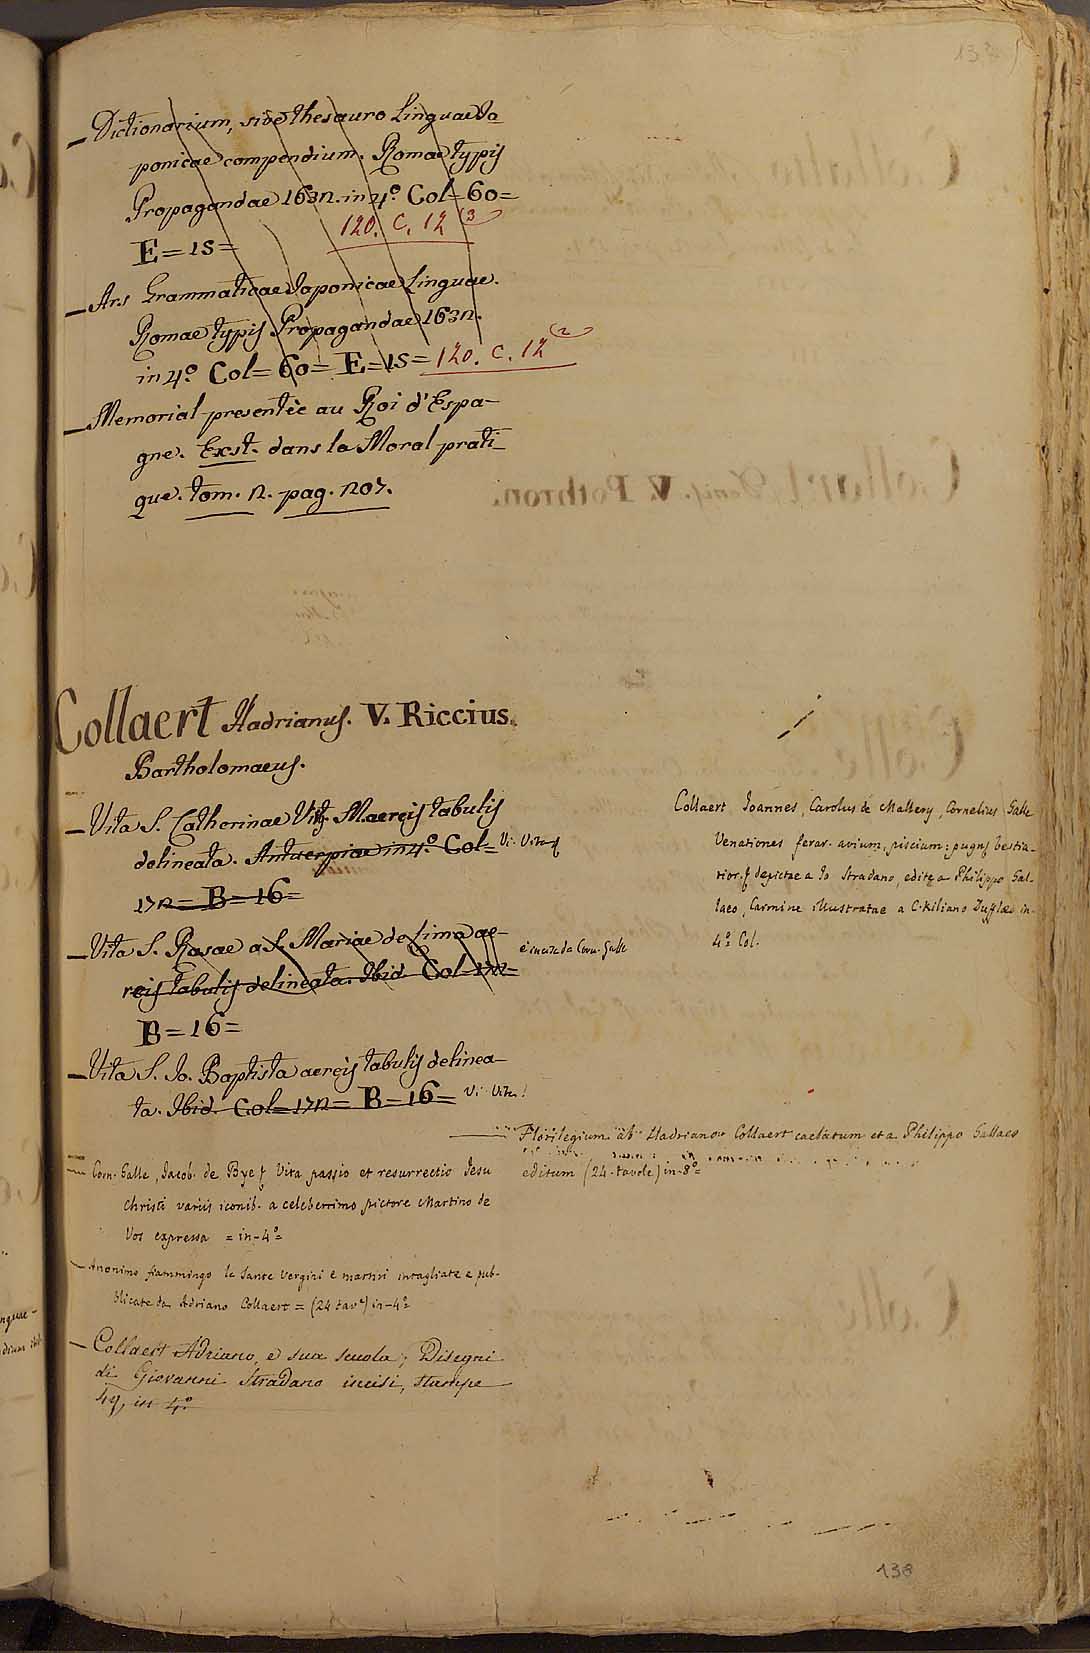 Dictionarium, sive thesauro Linguae Ja_
ponicae compendium. Romae typis
Propagandae 1632. in 4.° Col=60=
120. C. 12 (3
E=15=
Ars Grammaticae Japonicae Linguae.
Romae typis Propagandae 1632.
in 4.° Col=60= E=15= 120. C. 12 (2
Memorial presentée au Roi d'Espa-
gne. Exst. dans la Moral prati_
que. tom. 2. pag. 207.
Collaert Hadrianus. V. Riccius.
Bartholomaeus.
Vita S. Catherinae Virg. M. aereis tabulis
delineata. Antuerpiae in 4.° Col=
172= B=16=
Vita S. Rosae a S. Mariae de Lima ae-
reis tabulis delineata. Ibid. Col 172=
e incise da Corn. Galle
B=16=
Vita S. Io. Baptista aereis tabulis delinea-
ta. Ibid. Col=172= B=16=
Corn. Galle, Jacob. de Bye Vita passio et resurrectio Jesu
Christi variis iconib. a celeberrimo pictore Martino de
Vos expressa = in-4°=
Anonimo fiammingo le Sante Vergini e martiri intagliate e pub-
blicate da Adriano Collaert = (24 tav.e) in-4°
Collaert Adriano, e sua scuola; Disegni
di Giovanni Stradano incisi, stampe
in 4.°
Collaert Joannes, Carolus de Mallery, Cornelius Galle
Venationes ferar. avium, piscium: pugnę bestia-
rior. depictae a Io Stradano, editę a Philippo Gal-
laeo, Carmine illustratae a C. Kiliano Dufflaeo in-
4° Col.
Florilegium ab Hadriano Collaert caelatum et a Philippo Gallaeo
editum (24 tavole) in-8°=
138